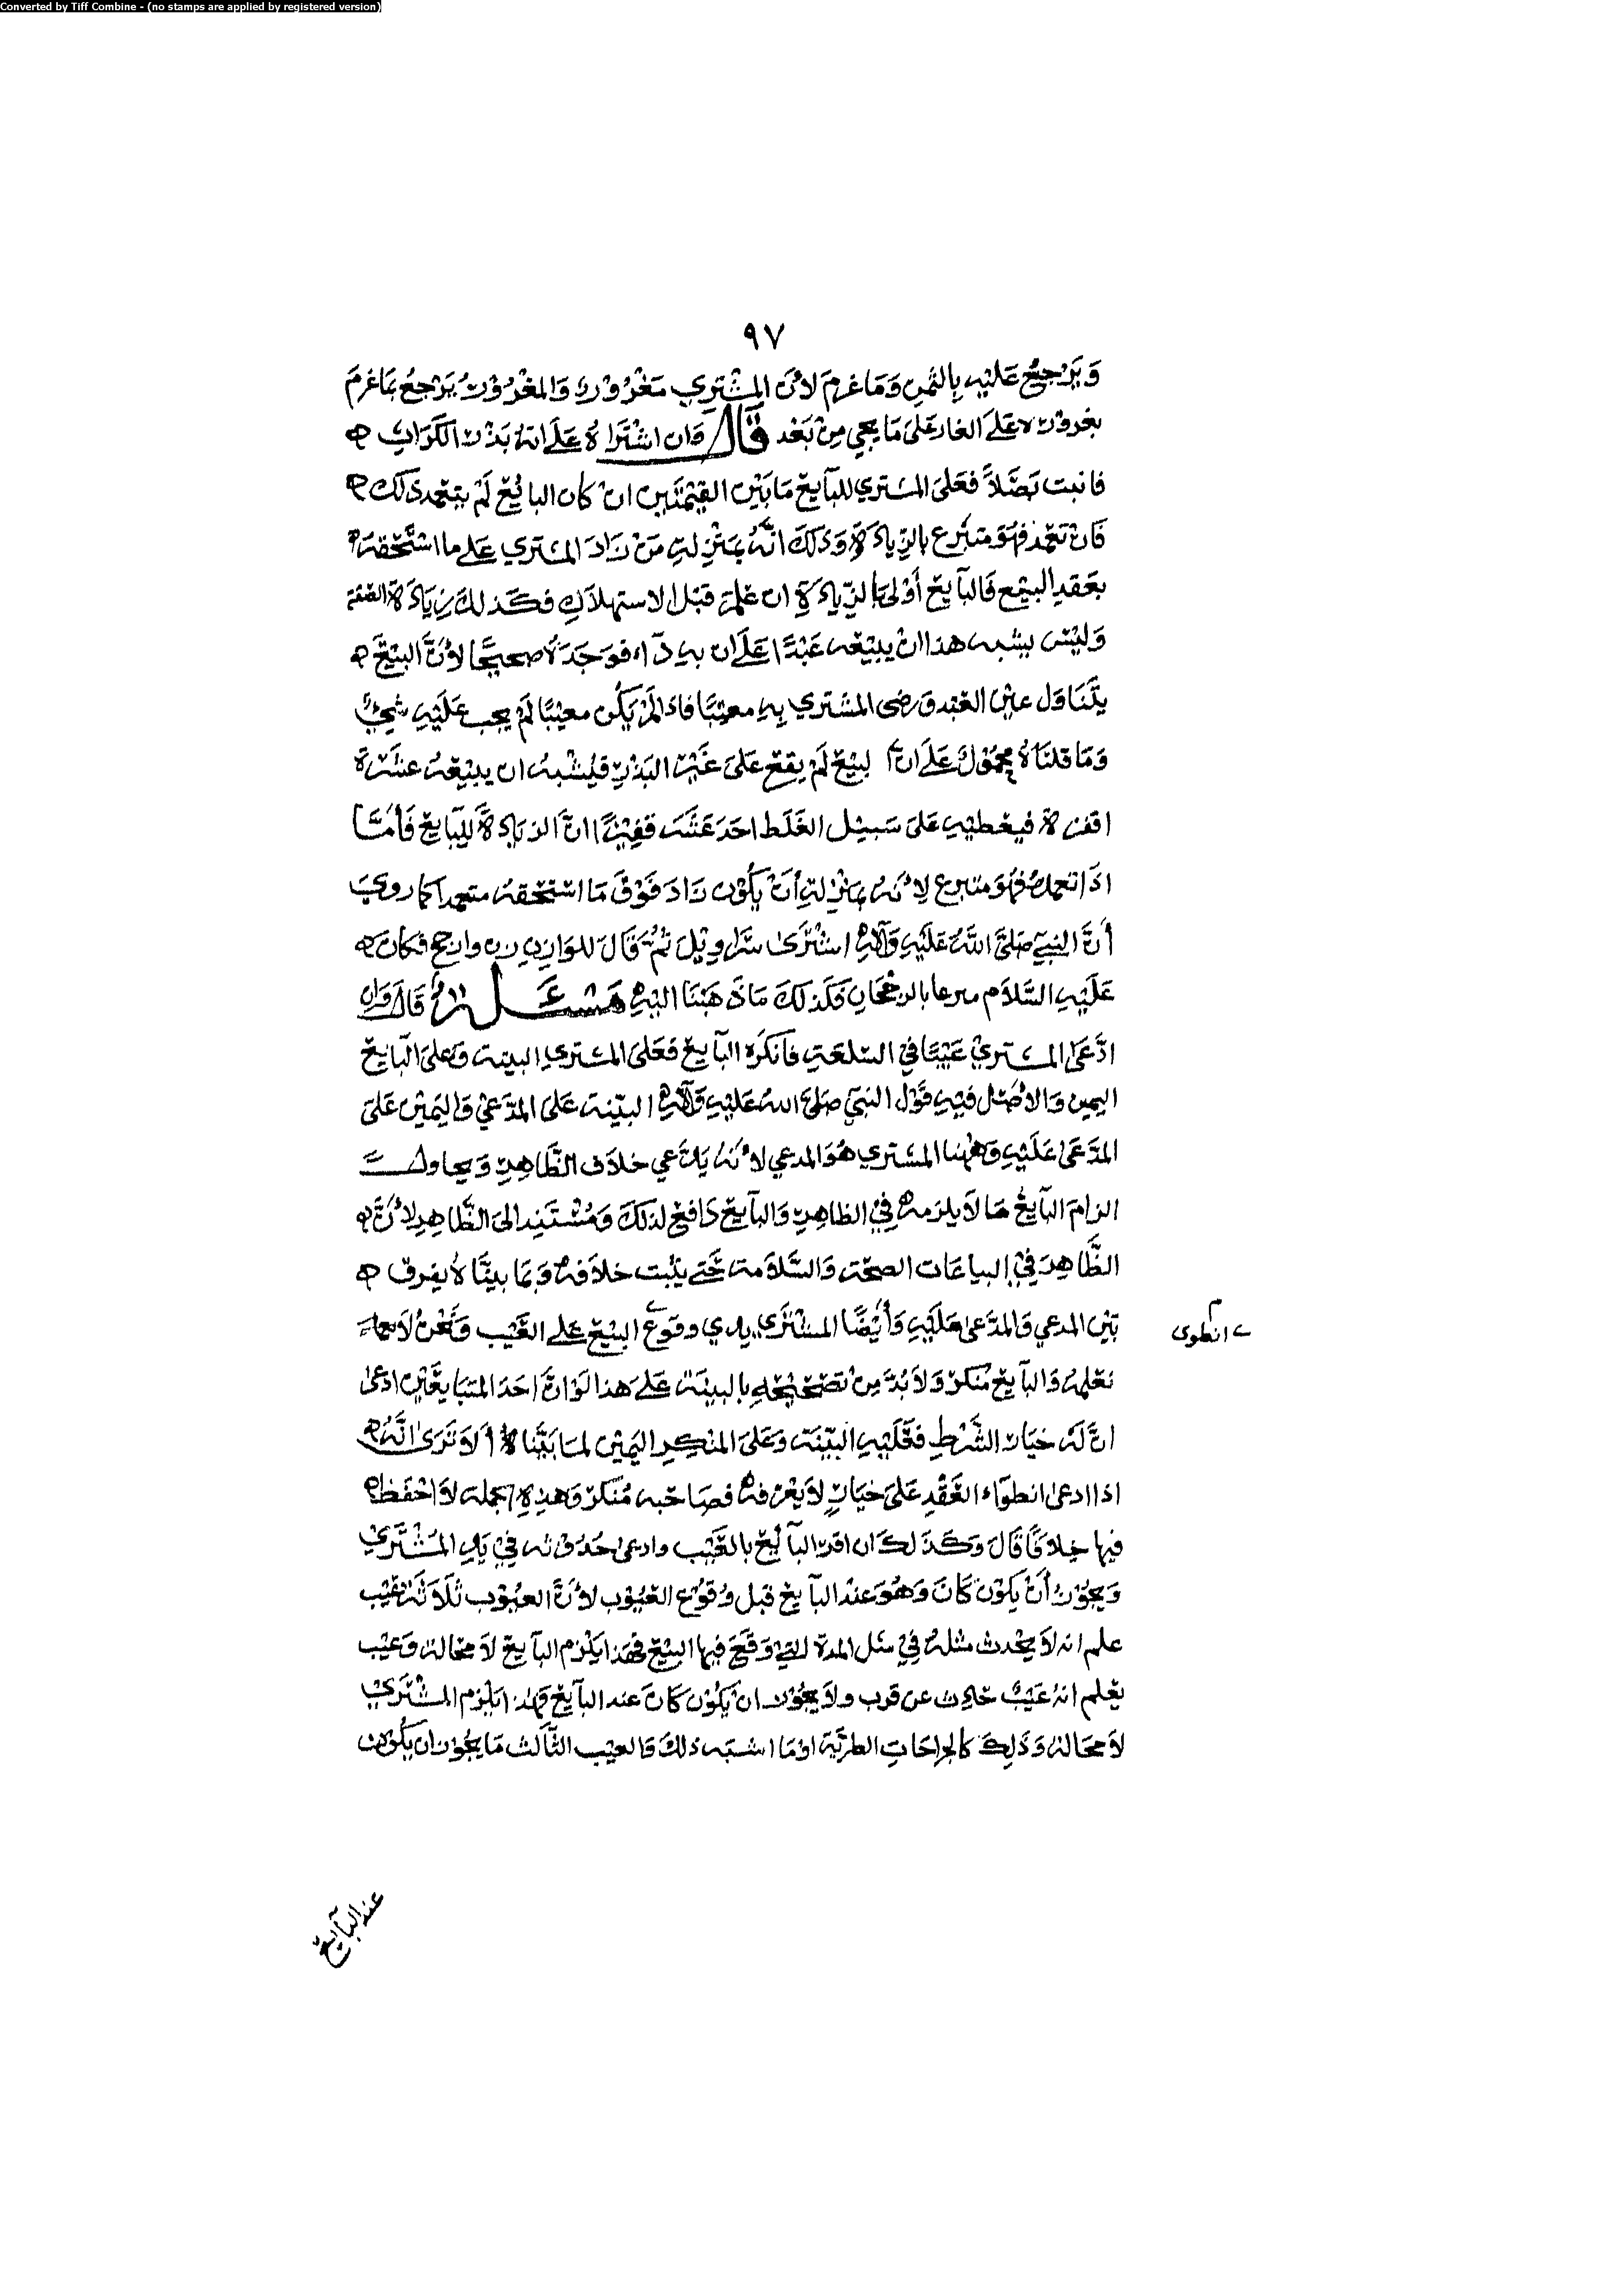 Converted by Tiff Combine - (no stamps are applied by registered version)
٩٧
وَيَرْجِعُ عَلَيْهِ بِالثَّمَنِ وَمَا غَرِمَ لأنَ المشْتَرِي مَغْرُوْرٌ وَالمغْرُوْرُ يَرْجِعُ بمَا غَرِمَ
بغروره عَلَى الغار عَلَى مَا يجي مِنْ بَعْد قَالَ وَان اشْتَرَاهُ عَلَى انهُ بَذْر الكَرَاث
فانبت بَصَلاً فَعَلى المشتري للبَآيع مَا بَيْن القِيْمَتَين انْ كان البائع لَمْ يتعمد ذلك
فَانْ تعمد فهُوَ متبَرع بالزِيَادَةِ وَذلكَ انَّهُ بمنْزلةِ مَنْ زَادَ المشتري عَلى ما اسْتَحَقهُ
بعَقدِ البيْع فَالبآيع أَوْلى بالزِّيادَةِ ان علمَ قَبْل الاستهلاكِ فكَذلكَ زِيَادَة الصّفة
وَليْسَ يشبه هذا انْ يبيْعَه عَبْدًا عَلَى ان بهِ دَآء فوَجَدَهُ صحيحًا لأنَّ البيْعَ
يتَنَاوَل عيْن العَبْد وَرضى المشتري بِهِ معيْبًا فاذَا لَمْ يَكُن معيْبًا لَمْ يجب عَلَيْهِ شيْءٌ
وَمَا قلنَاهُ محمُوْلٌ عَلَى ان البيْعَ لَمْ يقع عَلى عَيْن البَذْرِ فيُشْبهُ ان يبيْعَهُ عشَرَة
اقفزة فيعطيْهِ عَلى سَبيْل الغَلَط احَدَ عَشَر قفِيْزًا انَّ الزيَادَةَ للبَآيع فَأمَّا
اذَا تعمدهُ فهُوَ متبرع لأنهُ بمنْزلةِ أنْ يَكُوْن زَادَ فَوْقَ مَا اسْتَحَقهُ متعمدا كما رويَ
أَنَّ النبيَّ صَلَّى اللَّهُ عَلَيْهِ وَآلهِ اشْتَرَى سَرَاويْلَ ثُمَّ قَالَ للوَازِنِ زِن وارجح فكانَ
عَلَيْهِ السَّلاَم متبرعا بالرجْحَانِ فكَذلكَ مَا ذَهَبْنَا اليْهِ مَسْئَلَة قَالَ وَان
ادَّعَى المشتريْ عَيْبًا في السّلعَةِ فأنكَرَه البآيع فَعَلى المشتري البينة وَعلى البَآيع
اليمين وَالأصْل فيْهِ قَوْل النبيّ صَلى اللهُ عَليْهِ وَآلهِ البيّنة عَلى المدَّعِيْ وَاليَمِيْن عَلى
المدَّعَى عَلَيْهِ وَههُنا المشتري هُوَ المدعي لأنهُ يَدَّعي خلاَف الظَّاهِرِ وَيحاول
الزامَ البآيع مَا لاَ يلزمهُ فِيْ الظاهِرِ وَالبآيع دَافع لذلكَ وَمُسْتَنِد الى الظَّاهِرِ لأنَّ
الظَّاهِرَ فِيْ البياعَات الصحّة وَالسَّلاَمة حَتى يثبت خلاَفهُ وَبمَا بينَّاهُ يفرق
بَيْن المدعي وَالمدَّعى عَلَيْهِ وَأَيْضًا المشْتَري يدعي وقوع البيْع على العَيْب وَنَحْنُ لاَ
نعْلمهُ وَالبآيع مُنكر وَلاَ بُدَّ مِنْ تصْحيْحهِ بالبينَة عَلَى هذا لَوْ انَّ احَدَ المتبَايعَيْن ادعى
انَّ لهُ خيَار الشَّرْطِ فعَلَيْهِ البيّنَة وَعَلى المنكِرِ اليمِيْن لما بَيَّنَّاهُ أَلاَ تَرَى انَّهُ
اذا ادعى انطوَاء العَقْدِ عَلى خيَارٍ لاَ يعْرفهُ فصَاحبه مُنكر وَهذِهِ الجملة لاَ احْفظ
فيها خِلاَفًا قَالَ وَكَذلك ان اقر البآئع بالعَيْب وادعى حُدُوْثه فِيْ يَدِ المُشْتَرِي
وَيجُوْزُ أنْ يَكُوْنَ كَانَ وَهُوَ عنْد البآيع قبل وُقوْع العيُوْب لأنَّ العيُوْب ثَلاَثة عَيْب
علم انه لاَ يحْدث مثلهُ فِيْ مثل المدة التي وَقَعَ فيها البيْع فهَذا يَلْزم البآيع لاَ محالة وَعيْب
يعْلم انهُ عَيْبٌ حَادِث عن قرب ولاَ يجُوْز ان يَكُوْن كَانَ عند البَآيع فهذا يلْزم المشْتَري
لاَ محَالة وَذَلِكَ كالجرَاحَاتِ الطريَّة اوْ مَا اشبَه ذلكَ وَالعيب الثَّالث مَا يجُوز ان يَكُوْن
انطوى
عند البآيع